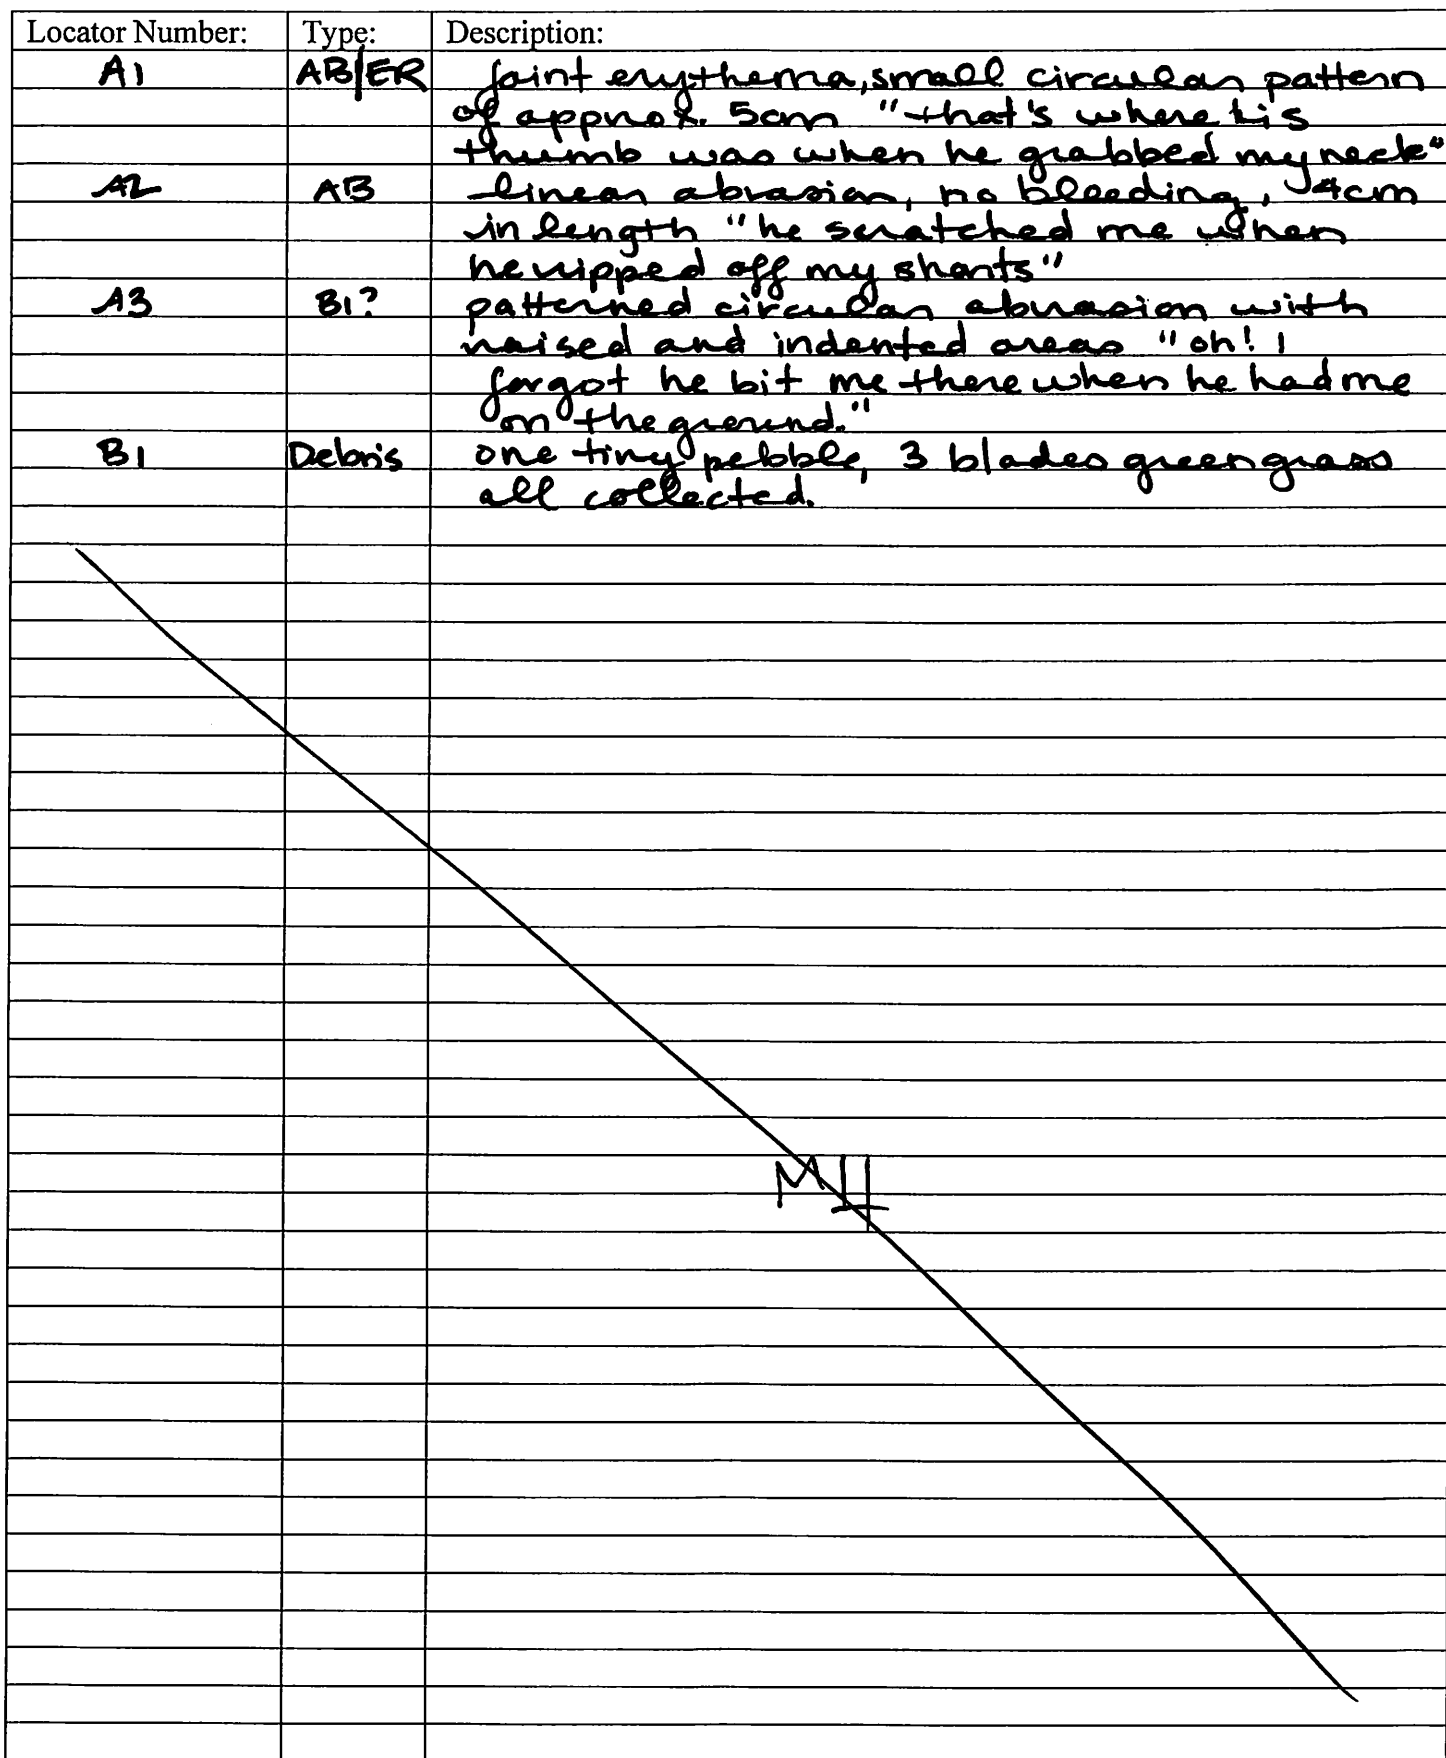 Locator Number: Type: Description:
A1 AB/ER faint erythema, small circular pattern
of approx. 5cm "that's where his
thumb was when he grabbed my neck"
A2 AB linear abrasion, no bleeding, 4cm
in length "he scratched me when
he ripped off my shorts"
A3 BI? patterned circular abrasion with
raised and indented areas "oh! I
forgot he bit me there when he had me
on the ground."
B1 Debris one tiny pebble, 3 blades green grass
all collected.
MH